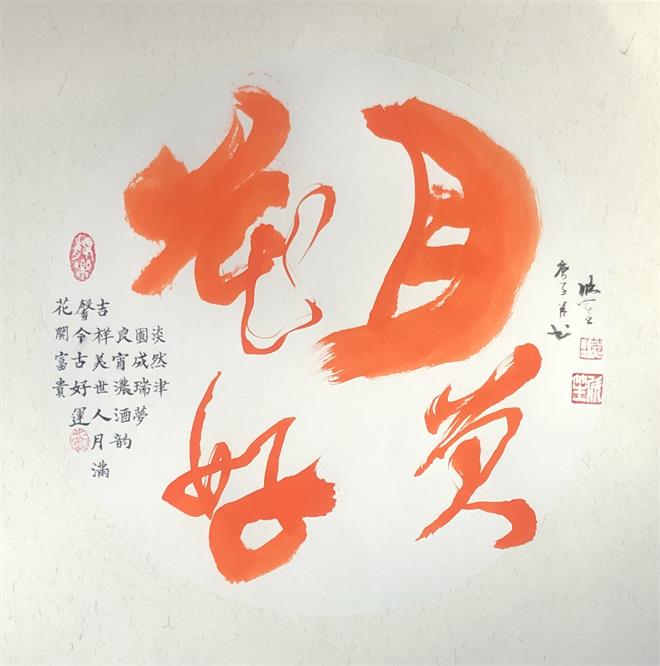 花好
月员
花開富貴
馨今古好運
吉祥美世人月滿
良宵濃酒韵
圓成瑞夢
淡然津
庚子月书